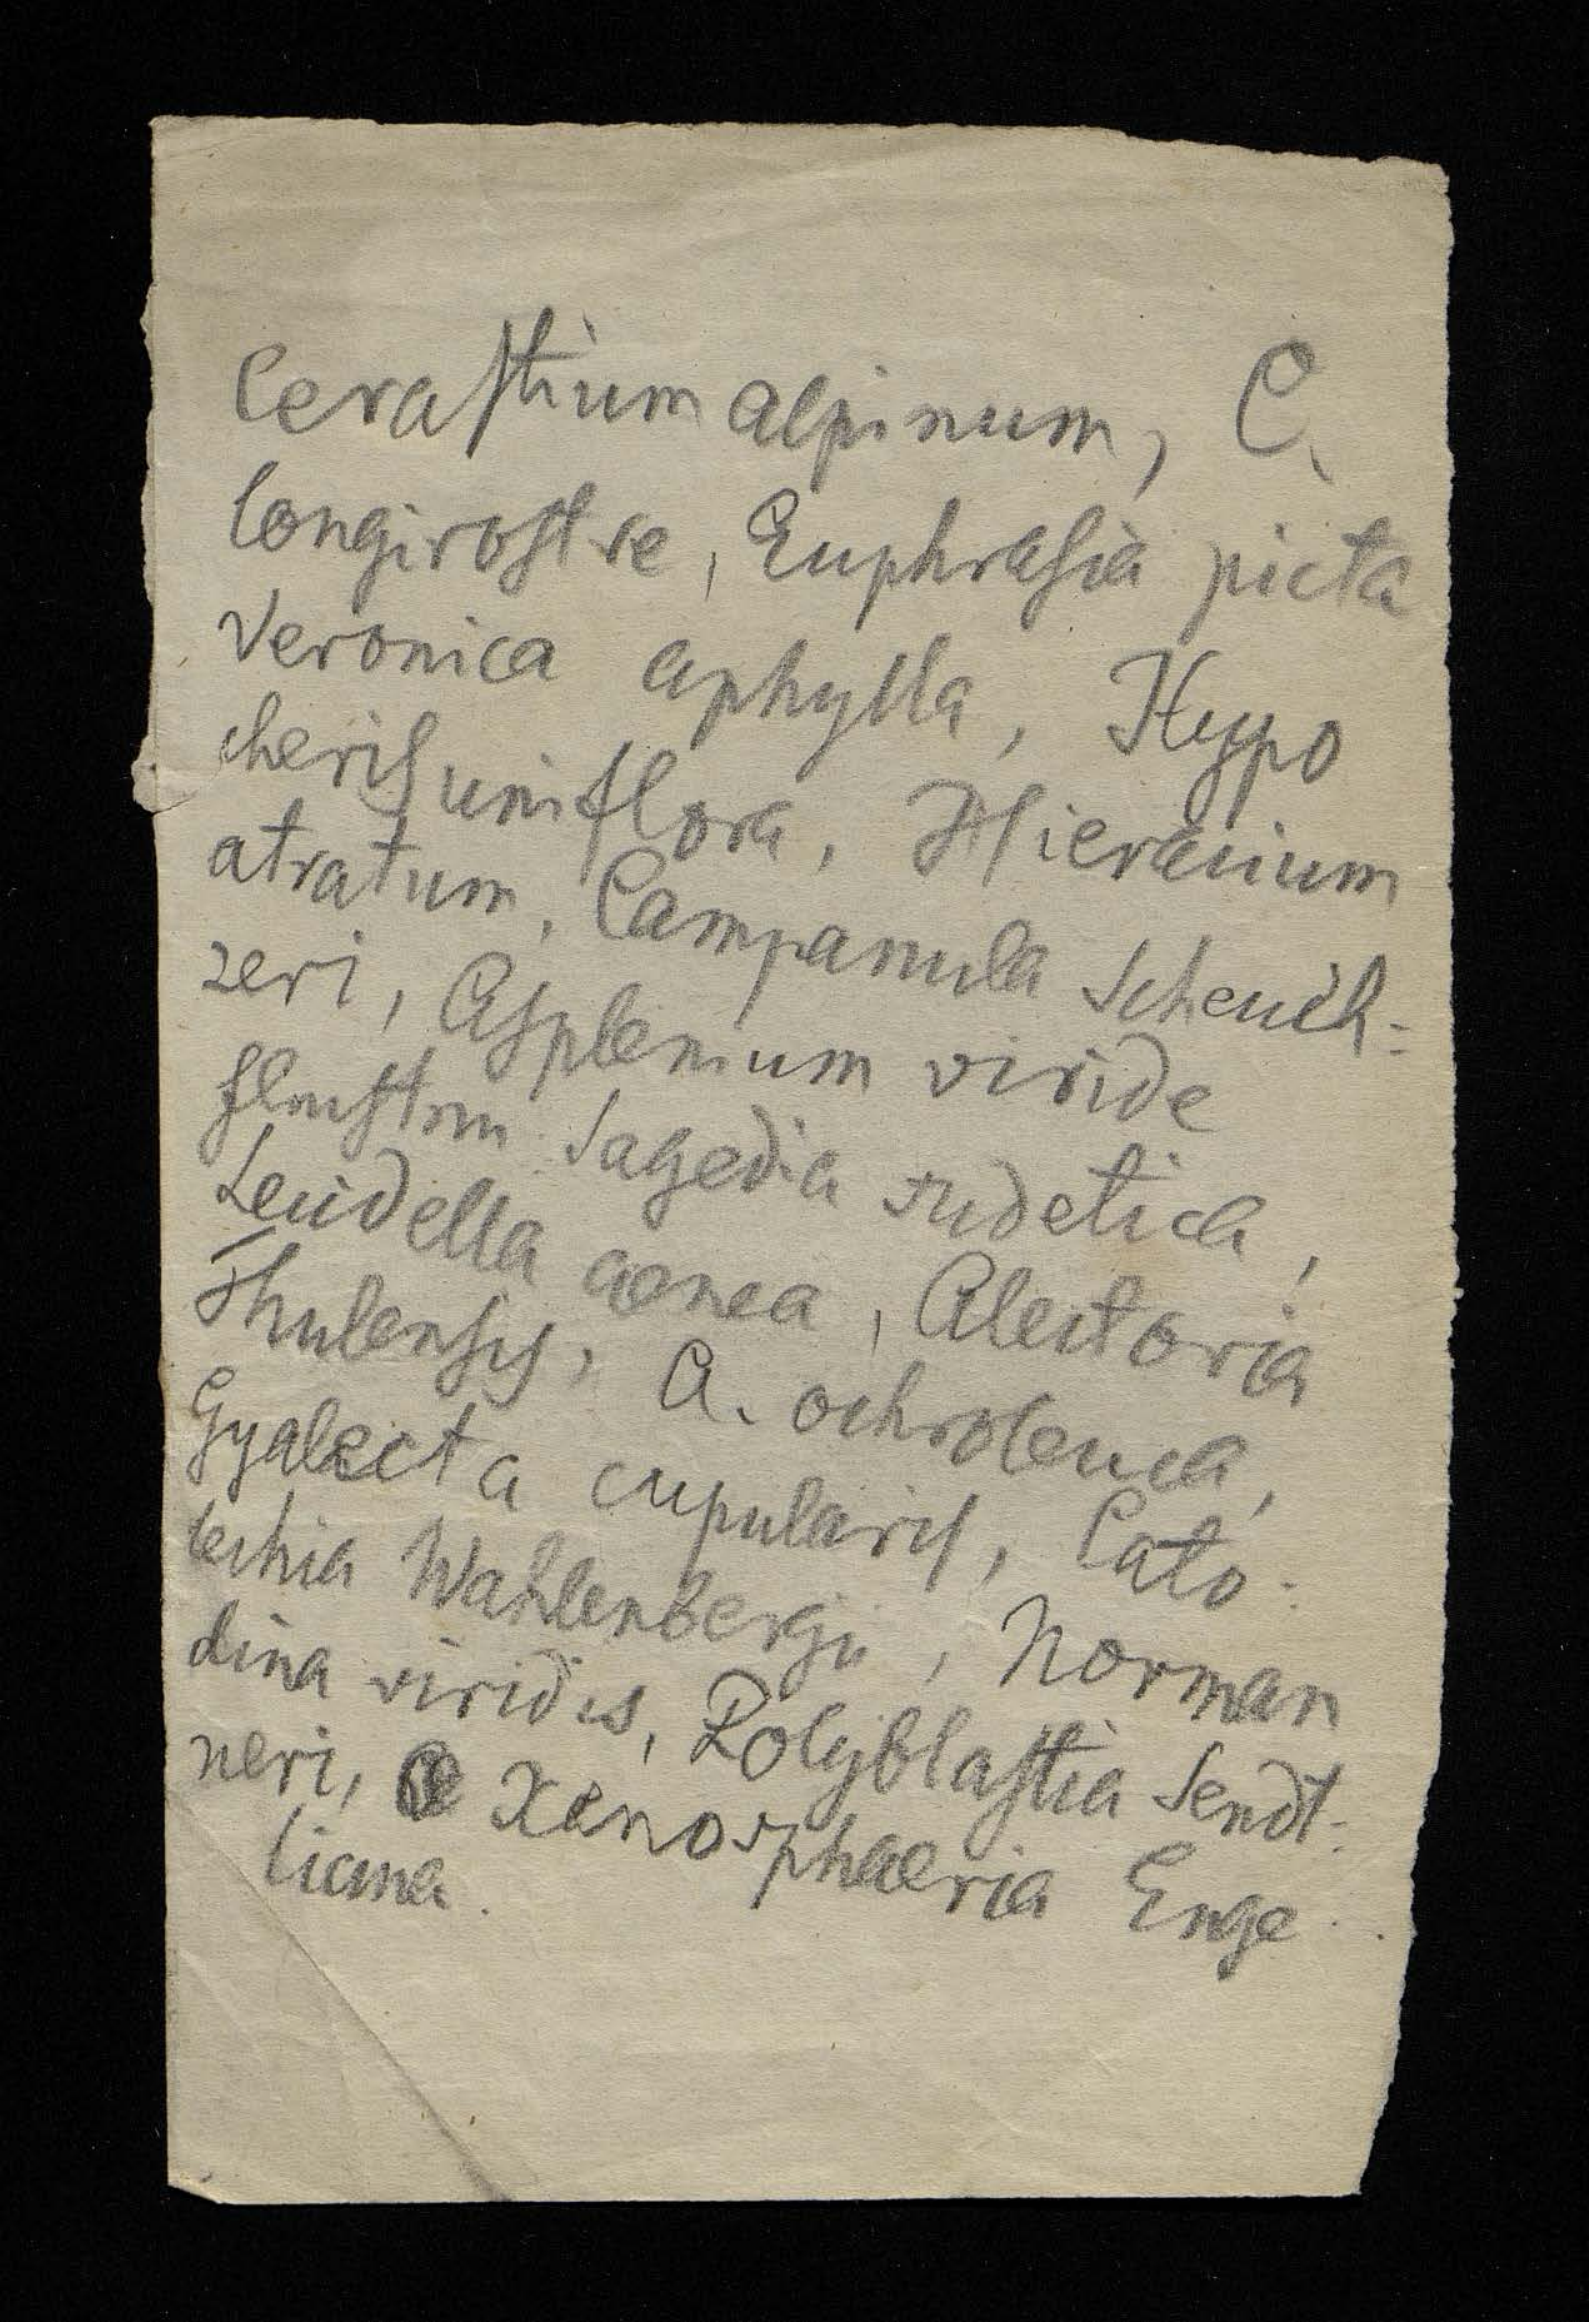 Cerastium alpinum, C.
longirostre, Euphrasia picta
Veronica aphylla, Hypo
cheris uniflora, Hieracium
atratum, Campanula Scheuch-
zeri, Asplenium viride
Sagedia sudetica,
Lecidella aenea, Alectoria
Thulensis, A. ochroleuca,
Gyalecta cupularis, Cato-
lechia Wahlenbergii, Norman
dina viridis, Polyblastia Sendt-
neri, Xenosphaeria Enge
liana.